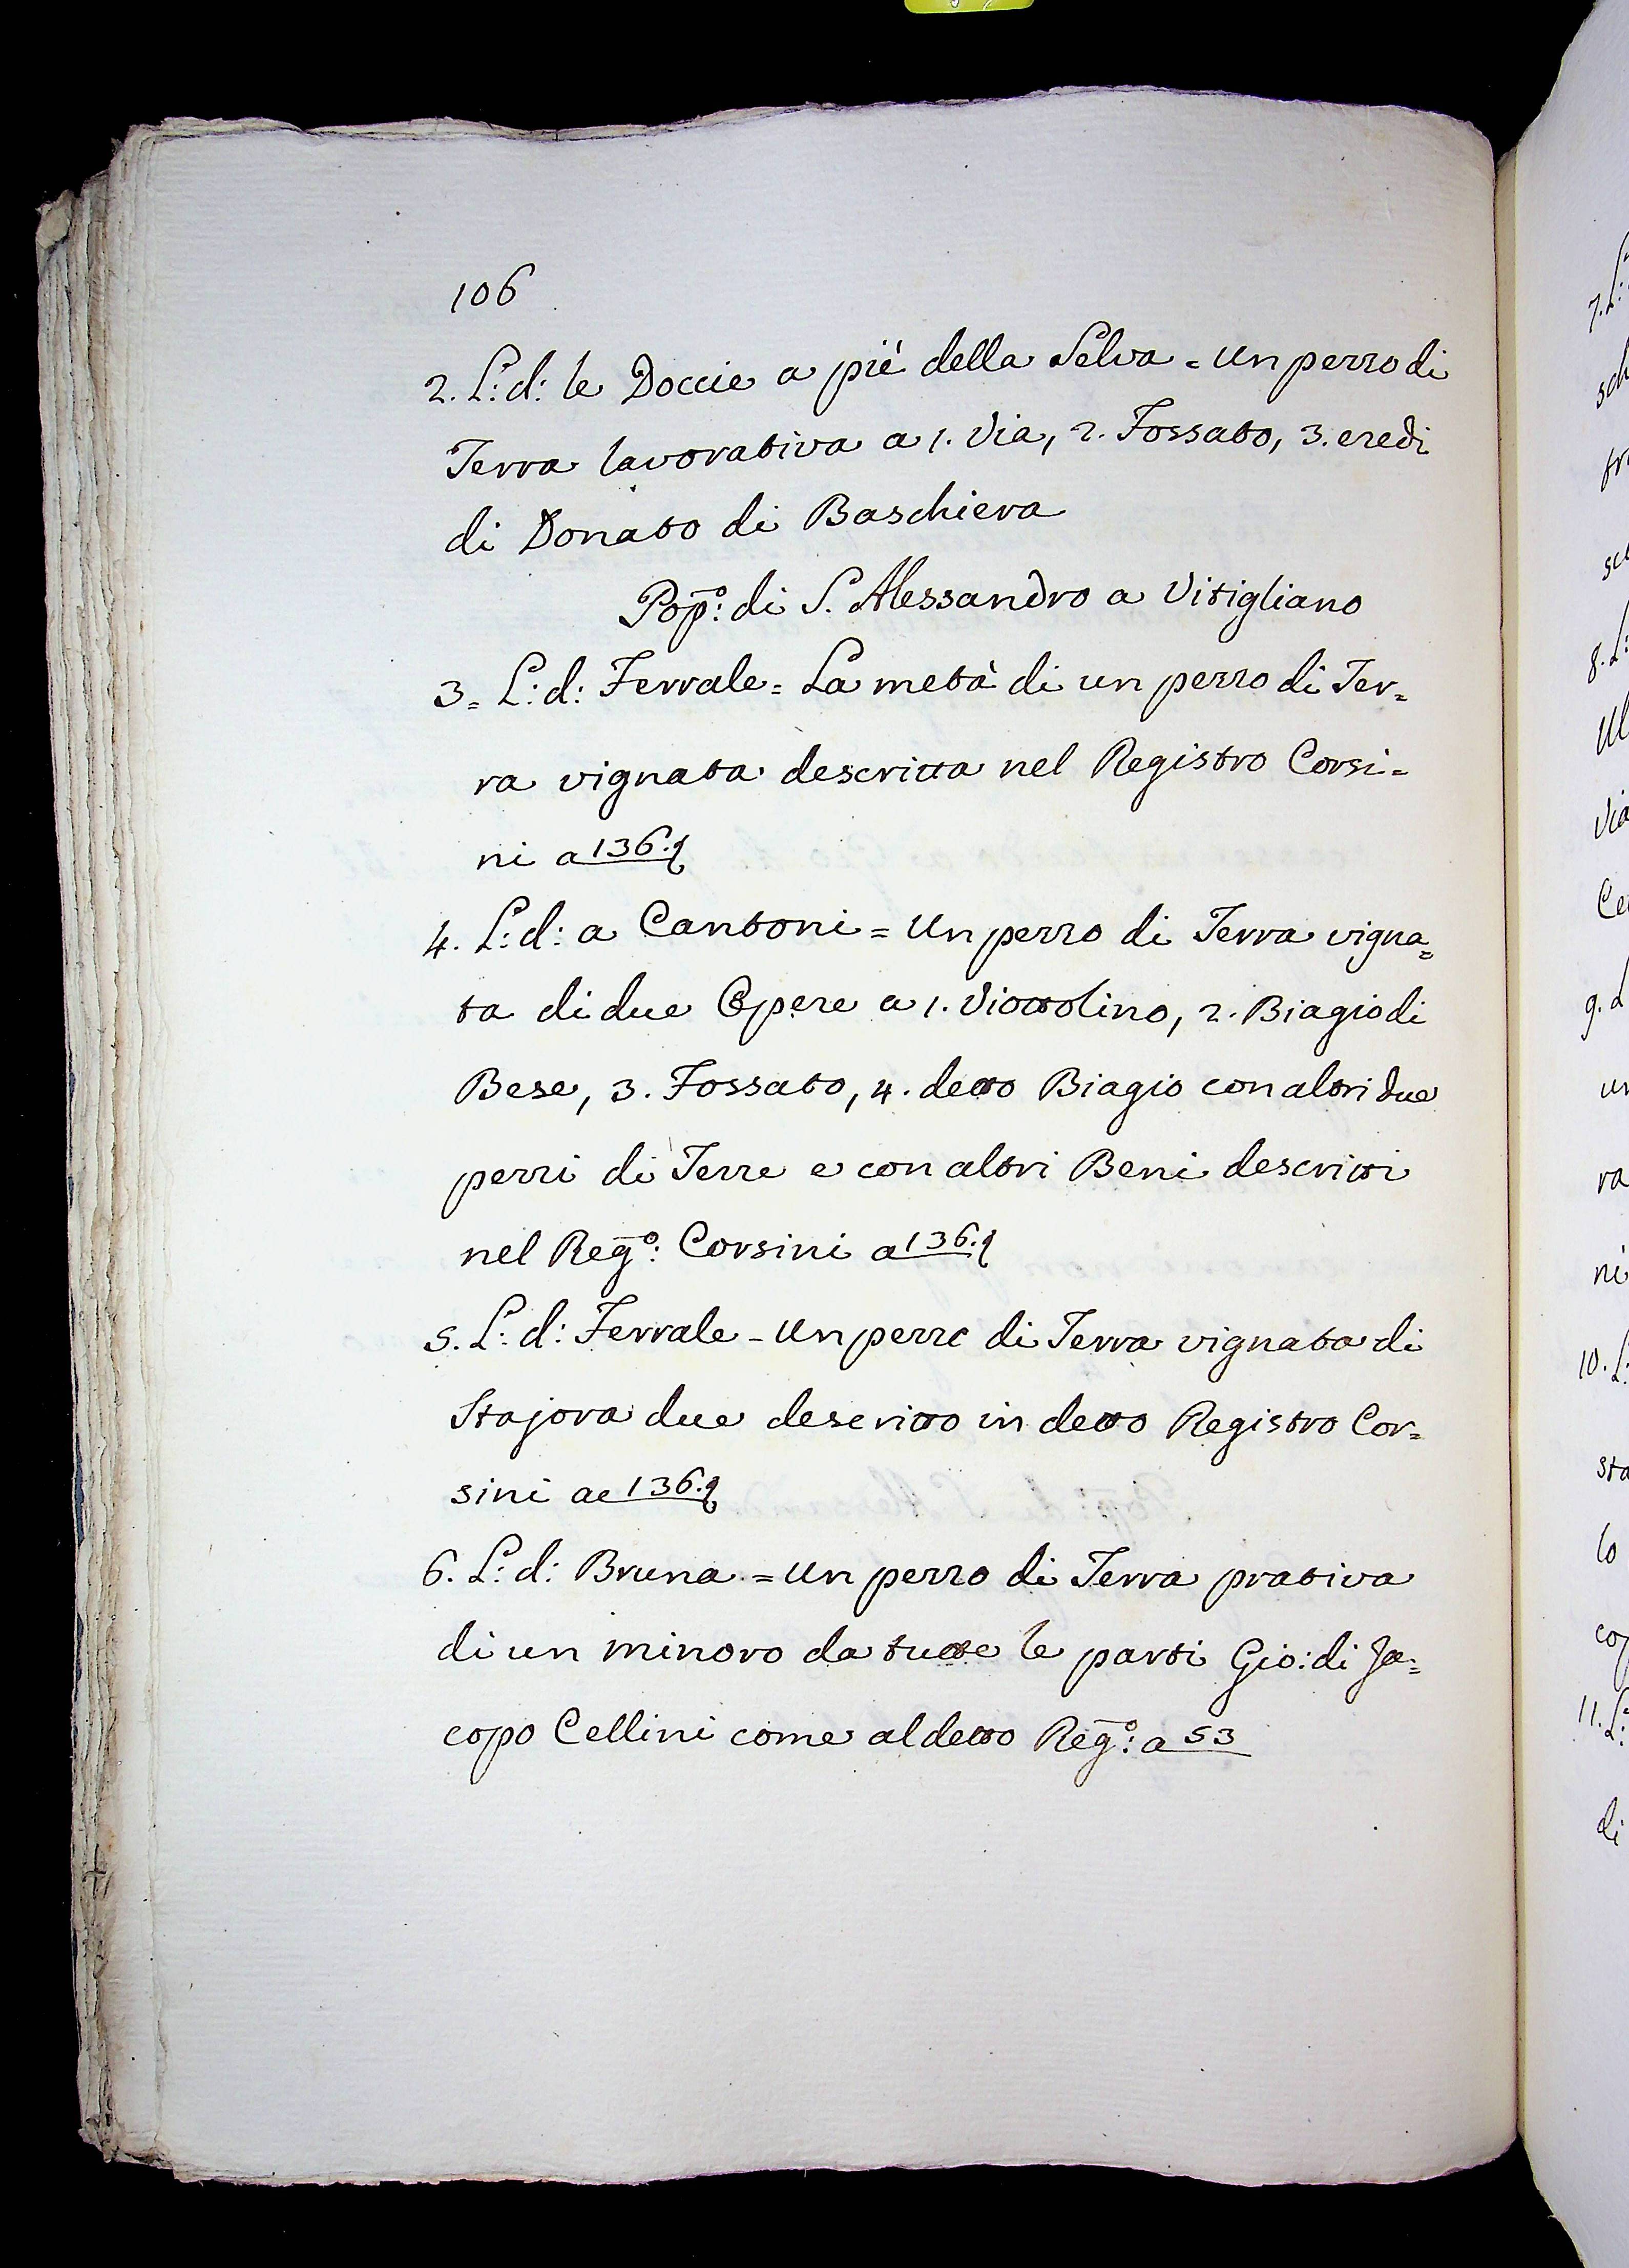 106
2. L: d: le Doccie a piè della Selva = un pezzo di
Terra lavorativa a 1. Via, 2. Fossato, 3. eredi
di Donato di Baschiera
Pop̄o: di S. Alessandro a Vitigliano
3= L: d: Ferrale = La metà di un pezzo di Ter=
ra vignata descritta nel Registro Corsi=
ni a 136.
4. L: d: a Cantoni = Un pezzo di Terra vigna=
ta di due Opere a 1. Viottolino, 2. Biagio di
Bese, 3. Fossato, 4. detto Biagio con altri due
pezzi di Terre e con altri Beni descritti
nel Reḡo: Corsini a 136.
5. L: d: Ferrale - Un pezzo di Terra vignata di
Stajora due descritto in detto Registro Cor=
sini ae 136.
6. L: d: Bruna = Un pezzo di Terra prativa
di un minoro da tutte le parti Gio: di Ja=
copo Cellini come al detto Reḡo: a 53